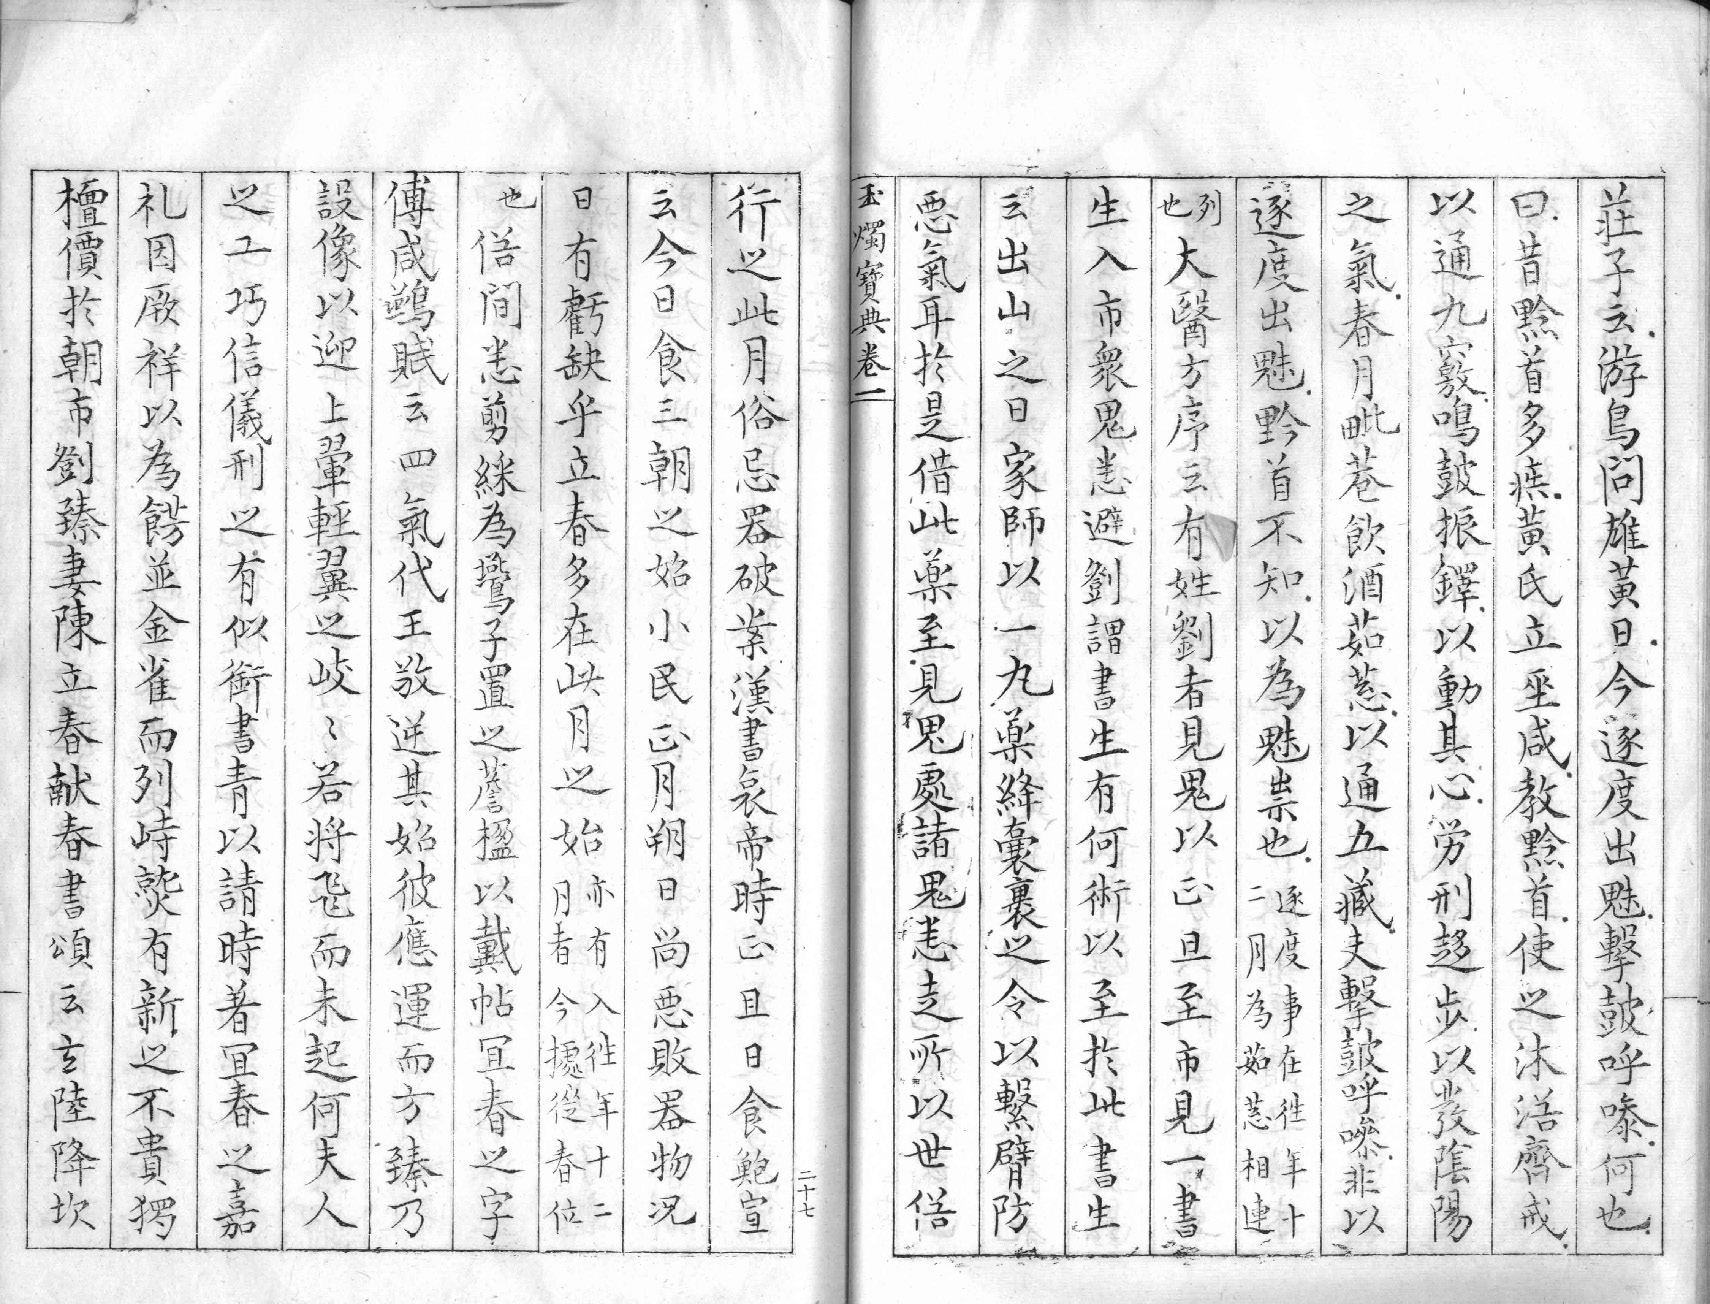 莊子云游鳥問雄黃曰今逐度出魅擊鼓呼噪何也
曰昔黔首多疾黃氏立巫咸教黔首使之沐浴齊戒
以通九竅鳴鼓振鐸以動其心労刑趍步以發陰陽
之氣春月毗巷飲酒茹葱以通五藏夫擊鼓呼噪非以
逐度出魅黔首不知以為魅祟也逐度事在往年十二月為茹葱相連
列也大醫方序云有姓劉者見鬼以正旦至市見一書
生入市衆鬼悉避劉謂書生有何術以至於此書生
云出山之日家師以一丸藥絳囊裹之令以繫臂防
悪氣耳於是借此藥至見鬼處諸鬼悉走所以世俗
玉燭寶典卷一
二十七
行之此月俗忌器破案漢書哀帝時正旦日食鮑宣
云今日食三朝之始小民正月朔日尚悪敗器物况
日有虧缺乎立春多在此月之始亦有入往年十二月者今據從春位
也俗間悉剪綵為鷰子置之簷楹以戴帖冝春之字
傅咸鷰賦云四氣代王敬逆其始彼應運而方臻乃
設像以迎上翬輕翼之岐〻若将飛而未起何夫人
之工巧信儀刑之有似銜書青以請時著冝春之嘉
礼因厥祥以為餝並金雀而列峙𤎅有新之不貴獨
擅價於朝市劉臻妻陳立春献春書頌云玄陸降坎